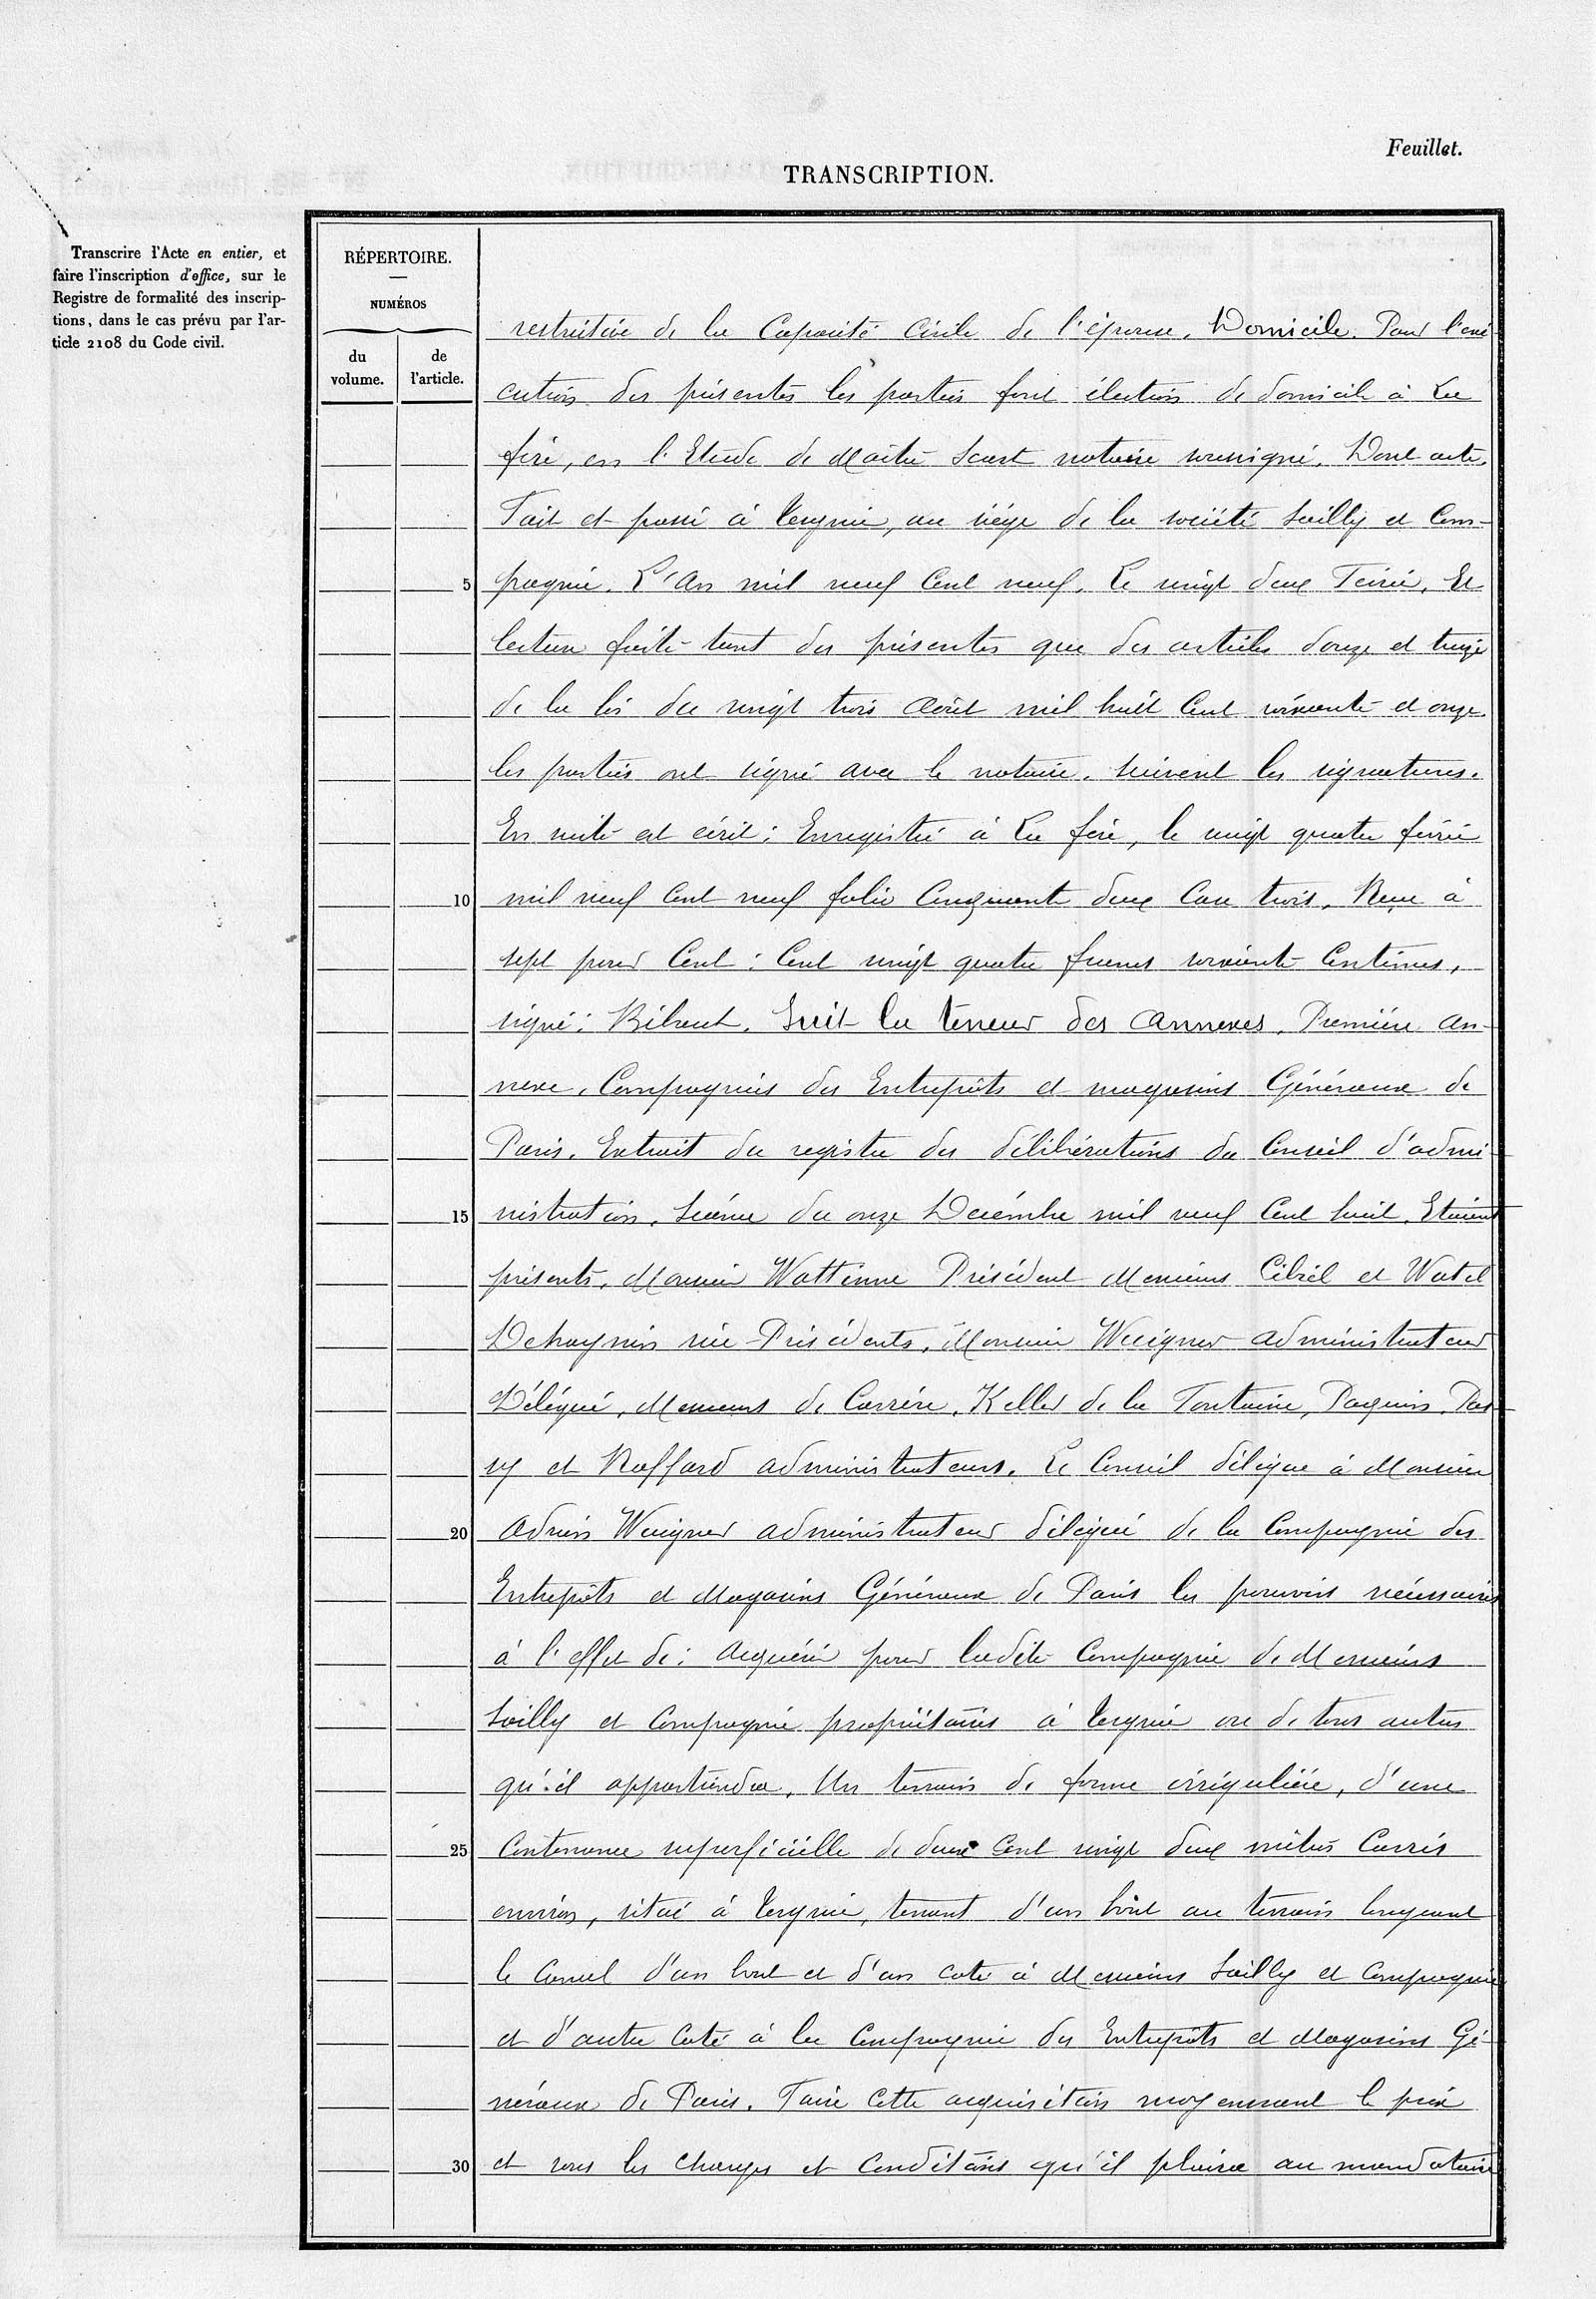 Feuillet.
TRANSCRIPTION.
Transcrire l'Acte en entier, et
faire l'inscription d'office, sur le
Registre de formalité des inscrip-
tions, dans le cas prévu par l'ar-
ticle 2108 du Code civil.
RÉPERTOIRE.
NUMÉROS
du volume.
de l'article.
restrictive de la Capacité Civile de l'épouse. Domicile. Pour l'exé-
cution des présentes les parties font élection de domicile à La
fère, en l'Etude de Maître notaire soussigné. Dont acte.
Fait et passé à Tergnier, au siége de la société Sailly et Com-
5 pagnie. L'An mil neuf Cent neuf. Le vingt deux Février. Et
lecture faite tant des présentes que des articles douze et treize
de la loi du vingt trois Août mil huit Cent soixante et onze
les parties ont signé avec le notaire. Suivent les signatures.
En suite est écrit: Enregistré à La fère, le vingt quatre février
10 mil neuf Cent neuf folio Cinquante deux Case trois. Reçu à
sept pour Cent: Cent vingt quatre francs soixante Centimes,
signé: Suit la teneur des Annexes. Première An-
nexe. Compagnies des Entrepôts et magasins Généraux de
Paris. Extrait du registre des délibérations du Conseil d'admi-
15 nistration. Séance du onze Décembre mil neuf Cent huit. Etaient
présents. Monsieur Wattinne Président Messieurs Cibiel et Watel
Dehaynin vice-Présidents. Monsieur Wuigner administrateur
Délégué. Messieurs de Carrère, Keller de la Fontaine, Paquin, Pas-
sy et Raffard administrateurs. Le Conseil délégue à Monsieur
20 Adrien Wuigner administrateur délégué de la Compagnie des
Entrepôts et Magasins Généraux de Paris les pouvoirs nécessaires
à l'effet de: Acquérir pour ladite Compagnie de Messieurs
Sailly et Compagnie propriétaires à Tergnier ou de tous autres
qu'il appartiendra, Un terrain de forme irrégulière, d'une
25 Contenance superficielle de deux Cent vingt deux mètres Carrés
environ, situé à Tergnier, tenant d'un bout au terrain longeant
le Canal d'un bout et d'un coté à Messieurs Sailly et Compagnie
et d'autre Coté à la Compagnie des Entrepôts et Magasins Gé-
néraux de Paris. Faire cette acquisition moyennant le prix
30 et sous les charges et Conditions qu'il plaira au mandataire